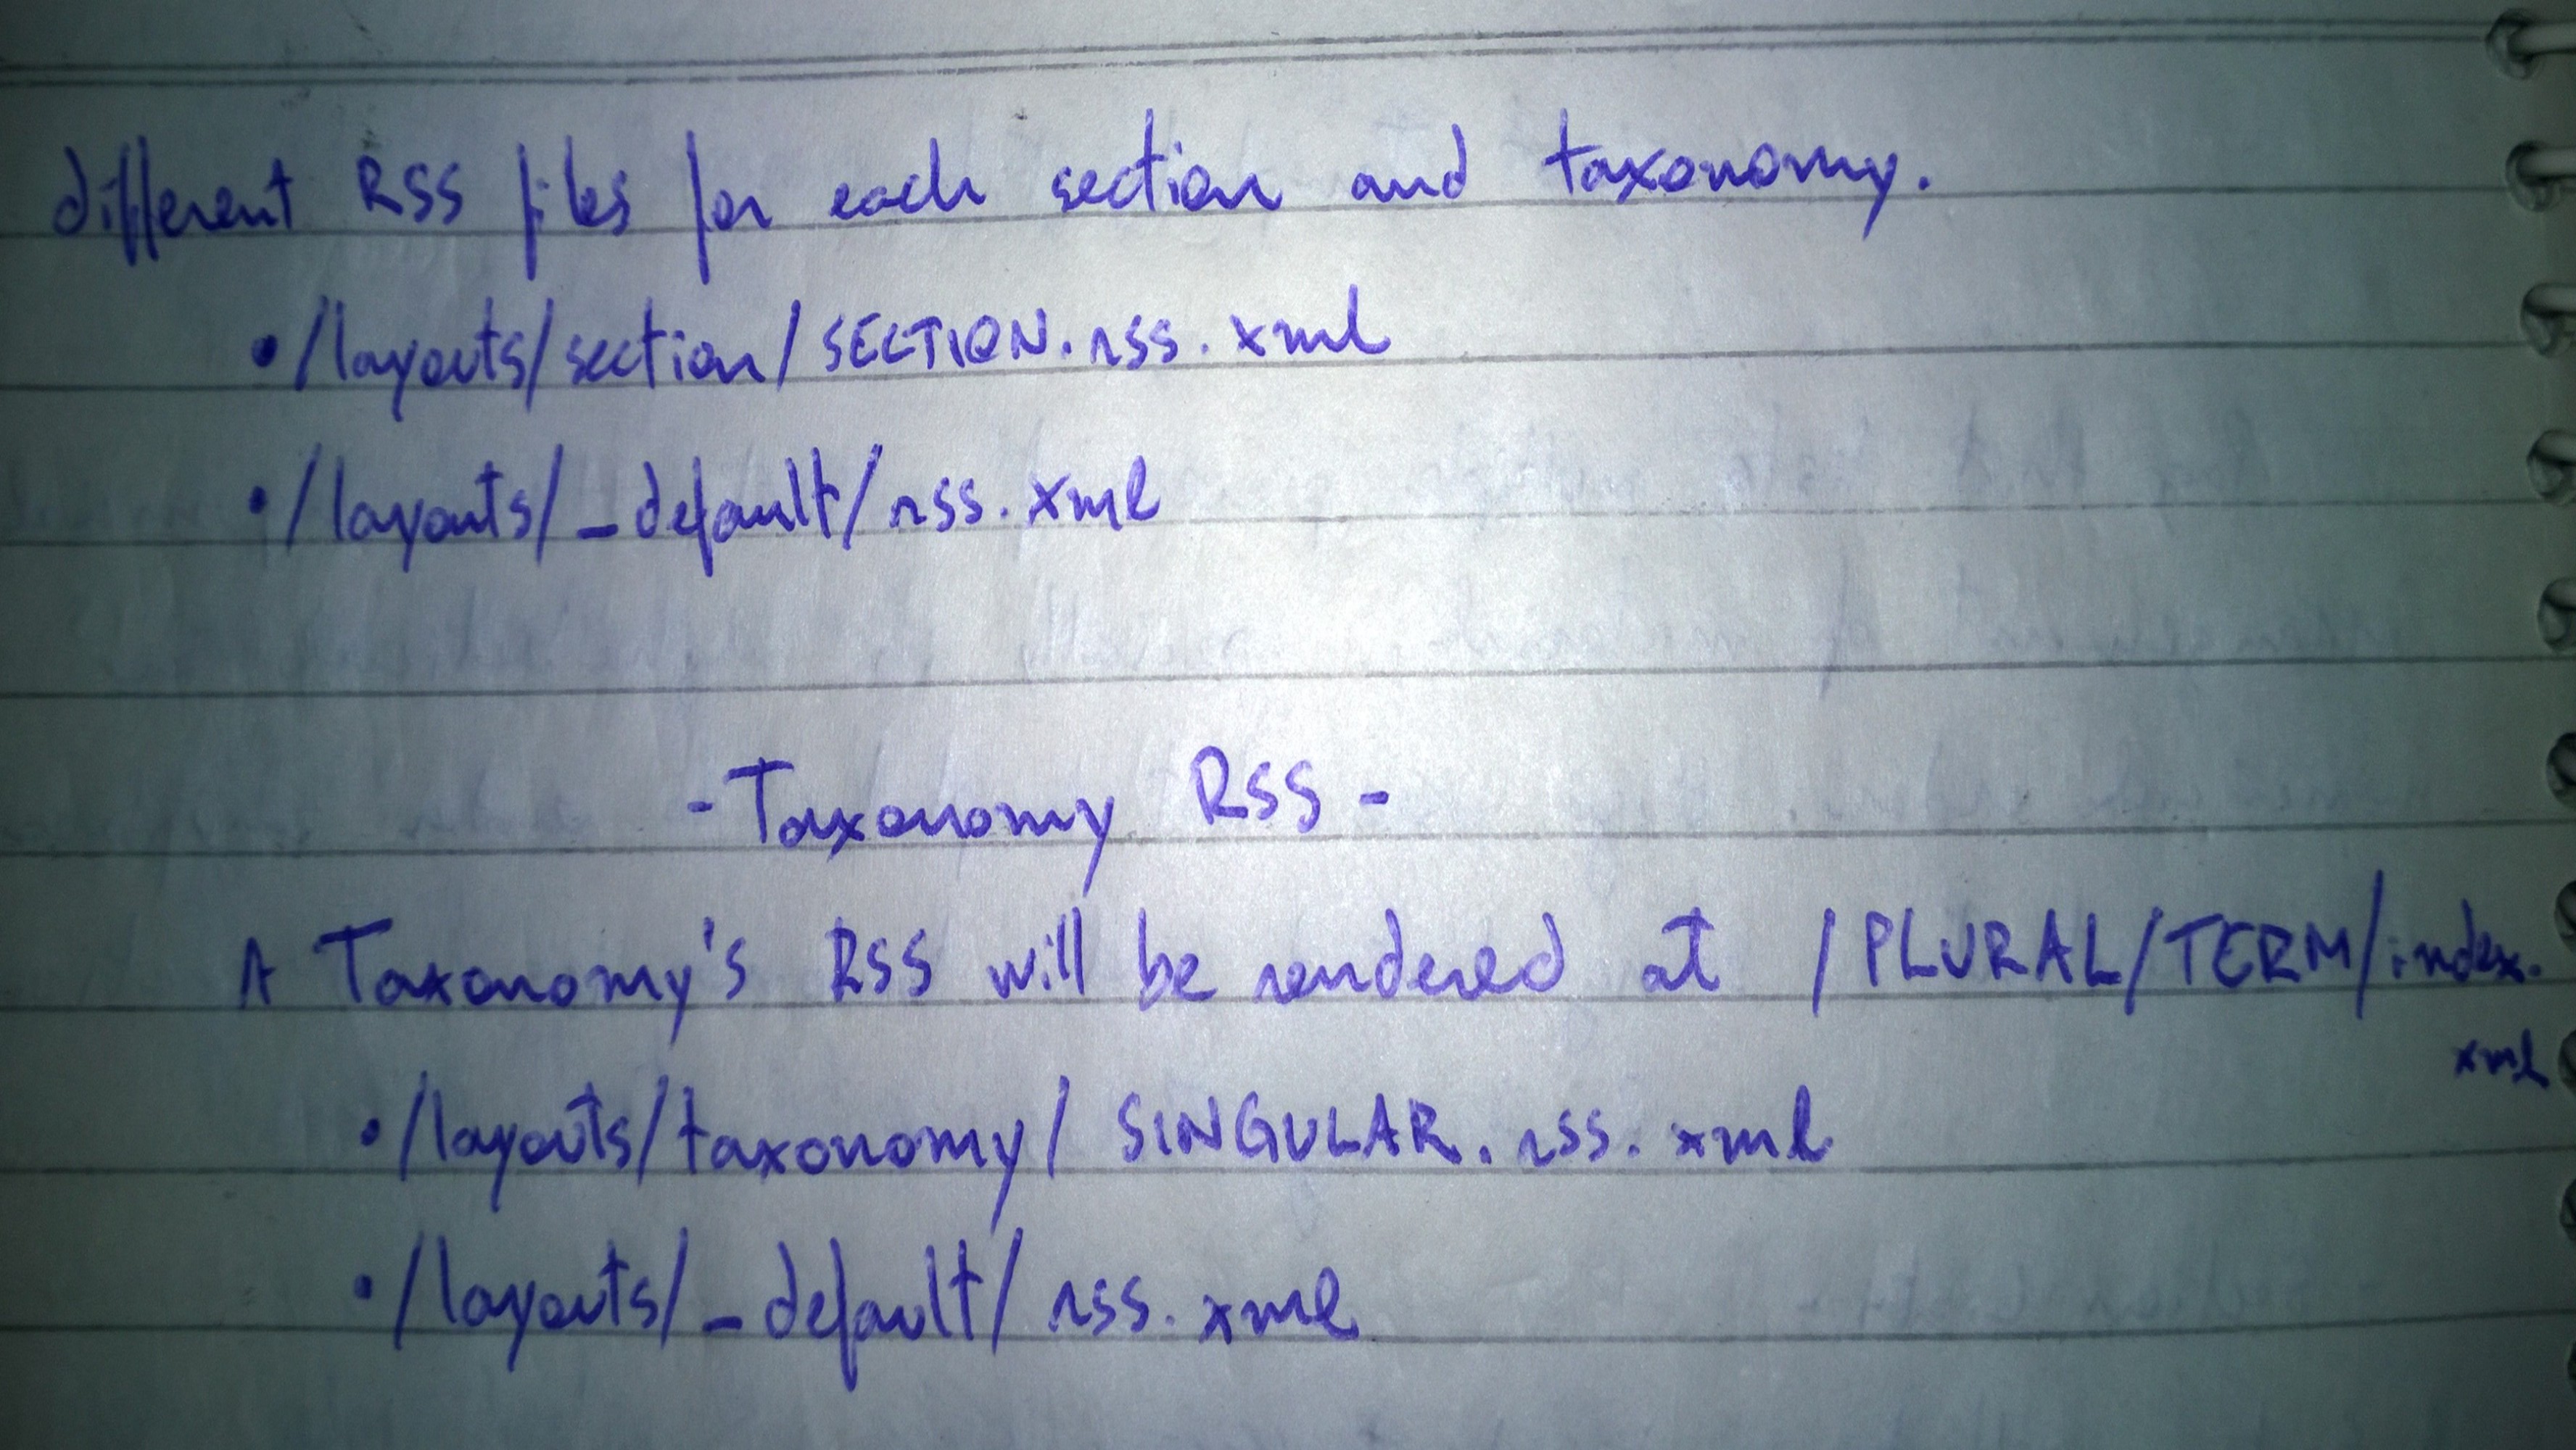 different RSS files for each section and taxonomy.
• /layouts/section/SECTION.rss.xml
• /layouts/_default/rss.xml
- Taxonomy RSS -
A Taxonomy's RSS will be rendered at /PLURAL/TERM/index.
xml
• /layouts/taxonomy/SINGULAR.rss.xml
• /layouts/_default/rss.xml